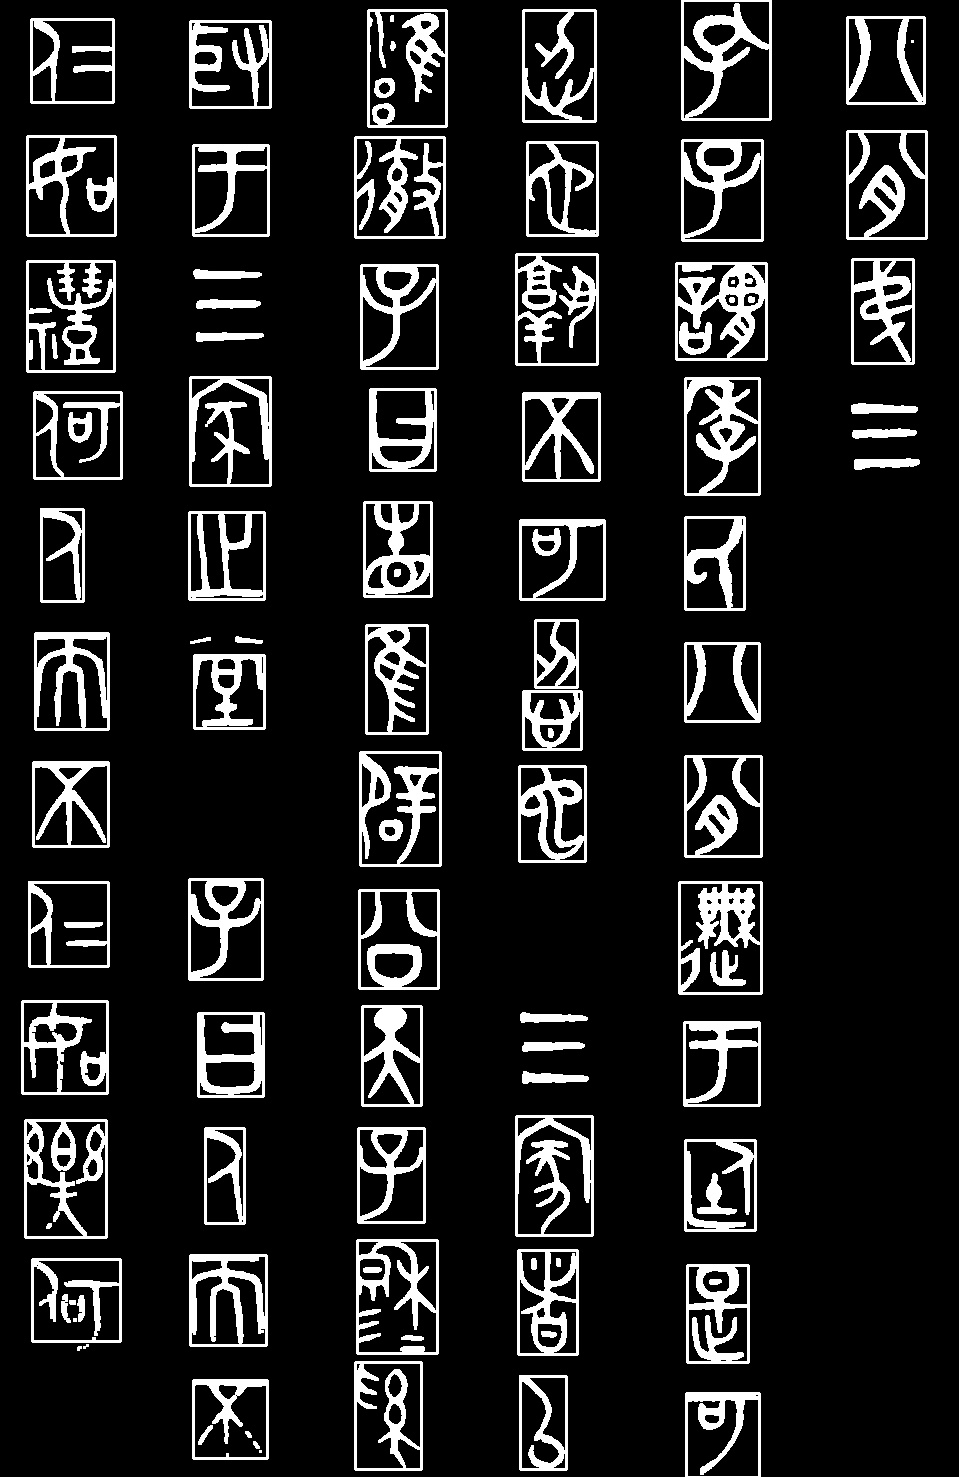 八佾弟三
子謂季氏八佾舞于廷是可
忍也孰不可忍也三家者以
雝徹子曰相維辟公天子穆穆奚
取于三家之堂子曰人而不
仁如禮何人而不仁如樂何